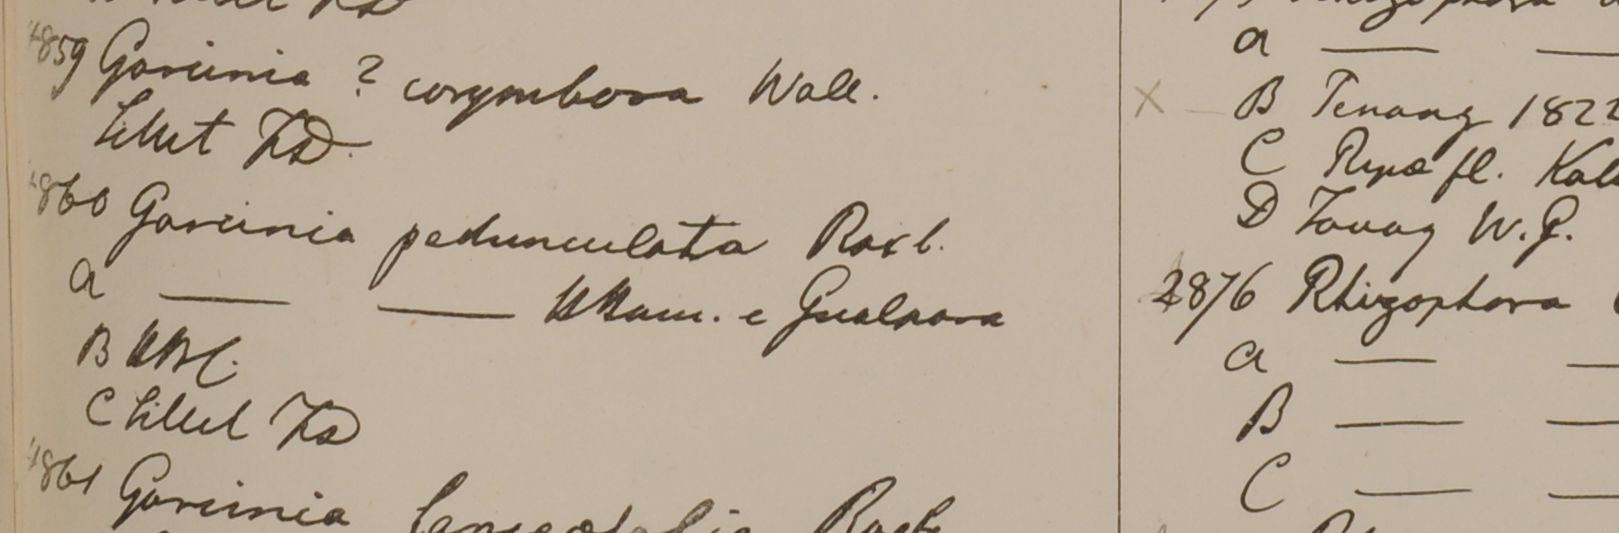 4859 Garcinia ? corymbosa Wall.
Sillet FD.
4860 Garcinia pedunculata Roxb.
a — — HHam. e Gualpara
B HBC.
C Sillet FD
4861 Garcinia lanceofolia Roxb
a — —
X B Penang 1822
C Ripa fl.
D Tavoy W.G.
4876 Rhizophora
a — —
B — —
C — —